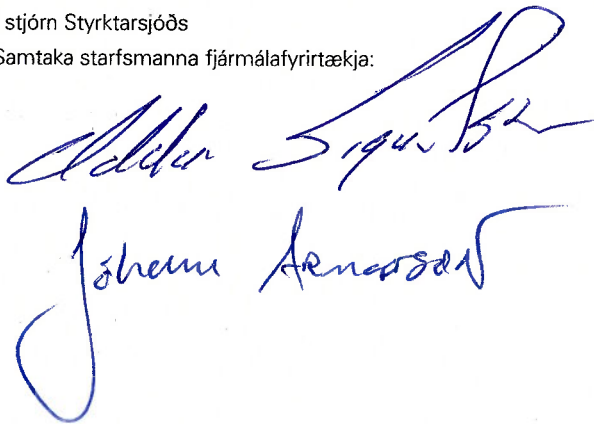 stjórn Styrktarsjóðs
Samtaka starfsmanna fjármálafyrirtækja:
Jóhann Arnarson